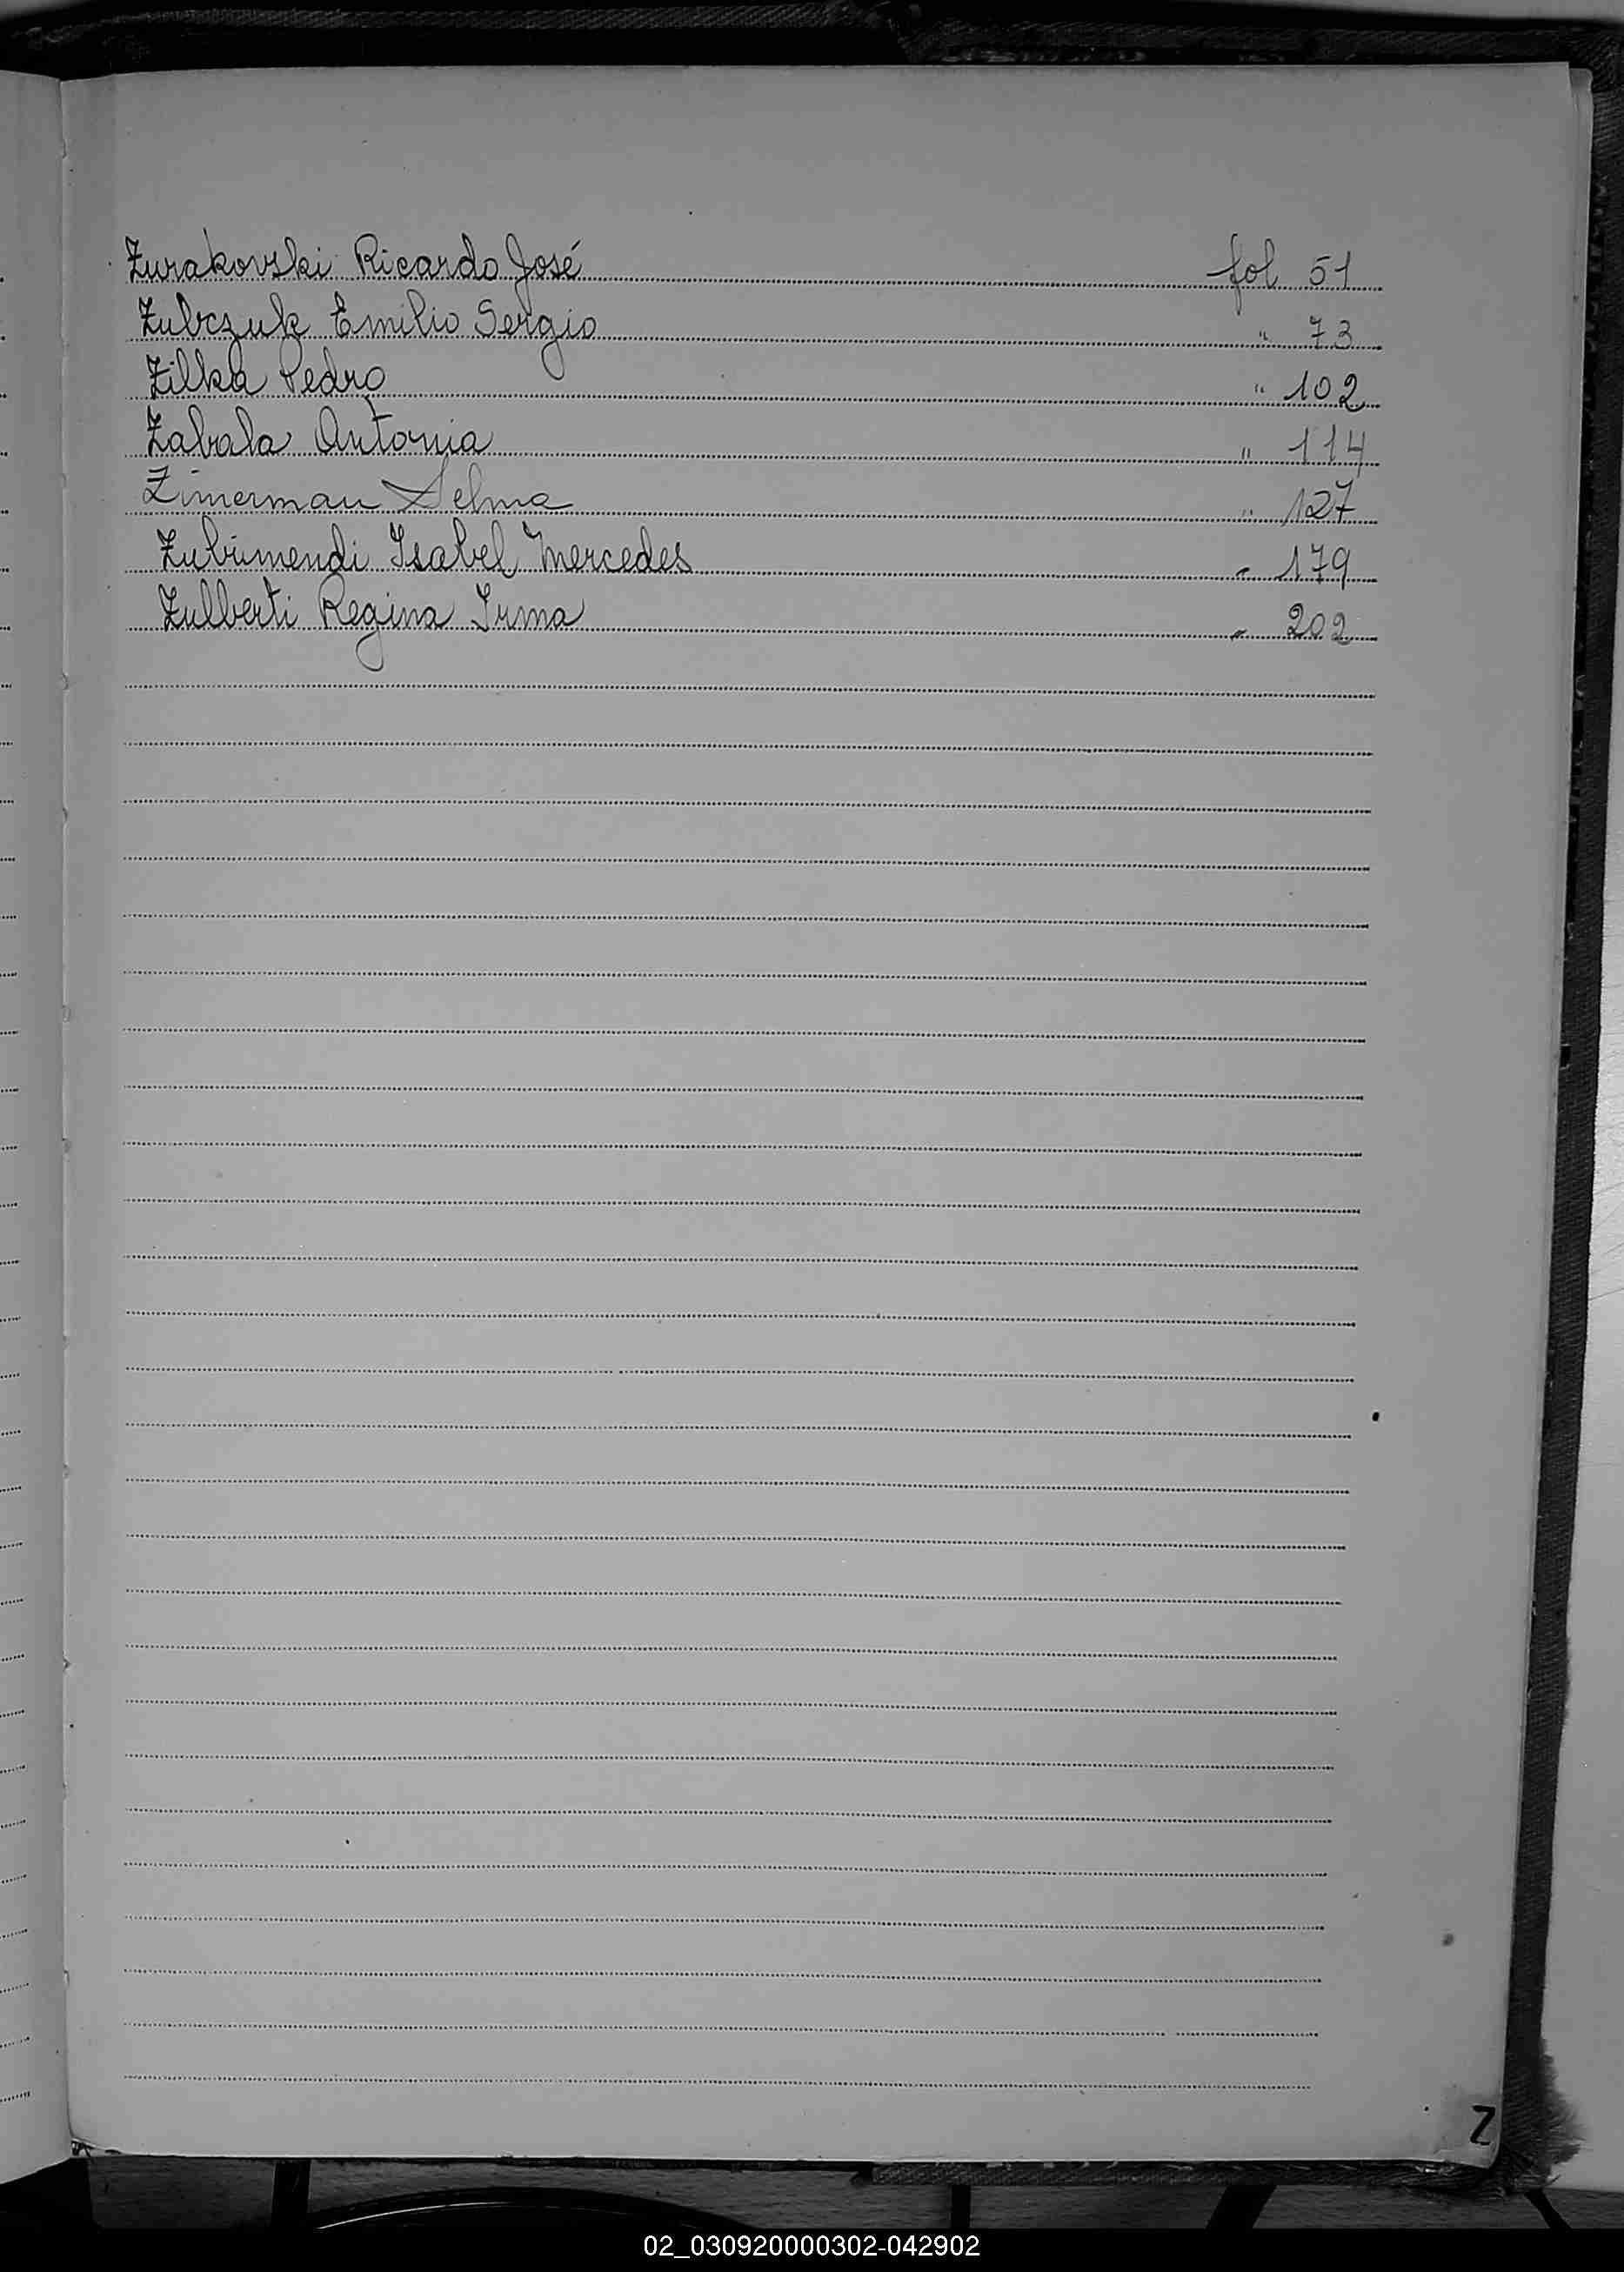 Zurakovski Ricardo José fol 51
Zubczuk Emilio Sergio " 73
Zilka Pedro " 102
Zabala Antonia " 114
Zimerman Selma " 127
Zubimendi Isabel Mercedes " 179
Zulberti Regina Irma " 202
Z
02_030920000302-042902